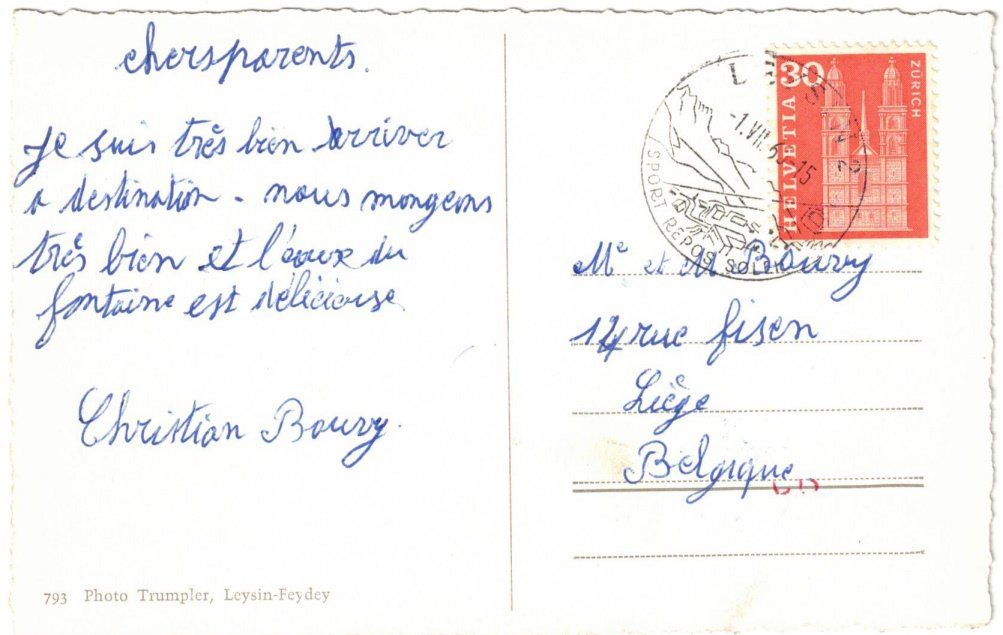 chers parents.
Je suis très bien arriver
a destination - nous mangeons
très bien et l'eaux du
fontaine est délicieuse
Christian Bouvy.
793 Photo Trumpler, Leysin-Feydey
30
HELVETIA
ZÜRICH
-1.VII.6 -15
SPORT REPOS SOLEIL
Me et M Bouvy
14 rue fisen
Liège
Belgique